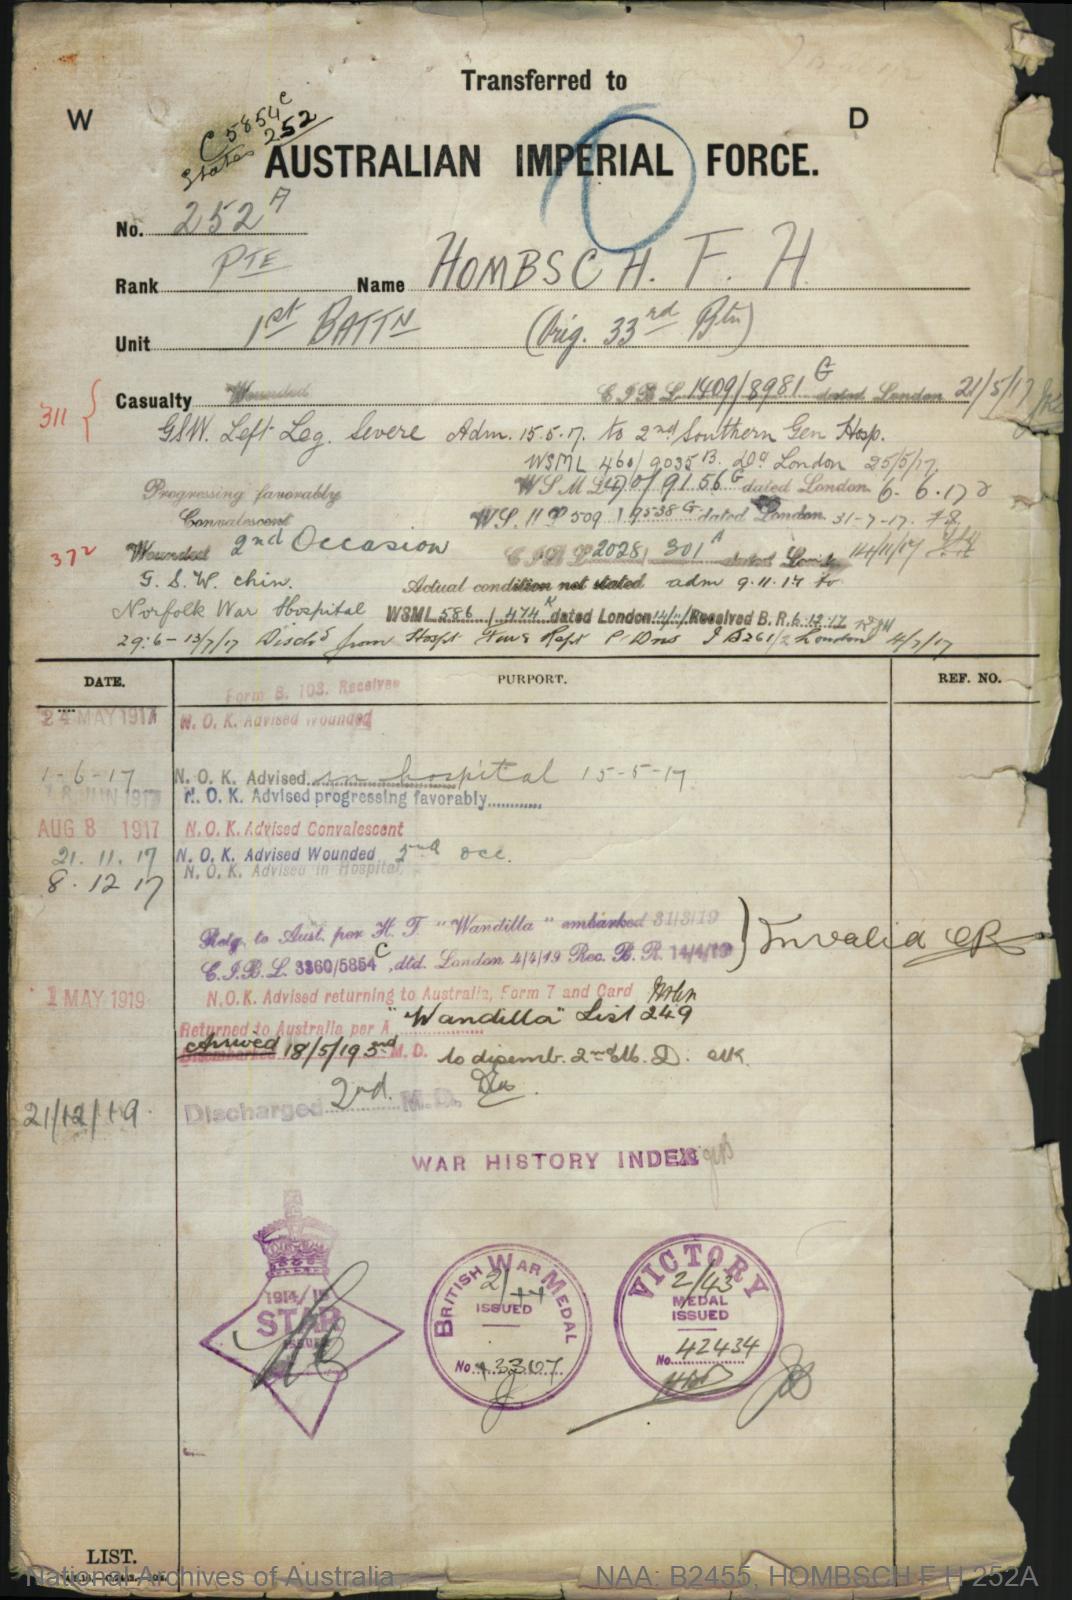 Transferred to
W D
C 5854 C
States 252
AUSTRALIAN IMPERIAL FORCE.
No. 252 A
Rank PTE Name HOMBSCH. F. H
Unit 1st BATTN (Orig. 33rd Btn)
311
Casualty Wounded C.I.B.L. 1409/8981 G dated London 21/5/17
GSW. Left Leg. Severe Adm. 15.5.17. to 2nd Southern Gen Hosp.
WSML 460/9035 B. Do London 25/5/17.
Progressing favorably WSML 470/9156 G dated London 6.6.17
Convalescent 509 19538 G dated London 31-7-17.
372
Wounded 2nd Occasion 2028 301 A 14/11/17
G. S. W. chin. Actual condition not stated adm 9.11.17 to
Norfolk War Hospital WSML 586/474 K dated London Received B. R. 6.12.17
29.6-13/7/17 from Hospt London
DATE. PURPORT. REF. NO.
Form B. 103. Received
24 MAY 1917 N. O. K. Advised Wounded
1-6-17 N. O. K. Advised in hospital 15-5-17
18 JUN 1917 N. O. K. Advised progressing favorably
AUG 8 1917 N. O. K. Advised Convalescent
21. 11. 17 N. O. K. Advised Wounded 2nd occ.
8. 12 17 N. O. K. Advised in Hospital
Retg. to Aust. per H. T. "Wandilla" embarked 31/3/19
C.I.B.L. 3360/5854 C, dtd. London 4/4/19 Rec. B. R. 14/4/19 Invalid
1 MAY 1919 N.O.K. Advised returning to Australia, Form 7 and Card
Returned to Australia per A "Wandilla" List 249
Arrived 18/5/19 3rd M. D. to disemb. 2nd M. D.
21/12/19 Discharged 2nd. M. D.
WAR HISTORY INDEX
1914/15
STAR
ISSUED
BRITISH WAR MEDAL
2/44
ISSUED
No. 13307
VICTORY
2/43
MEDAL
ISSUED
No. 42434
LIST.
National Archives of Australia NAA: B2455, HOMBSCH F H 252A